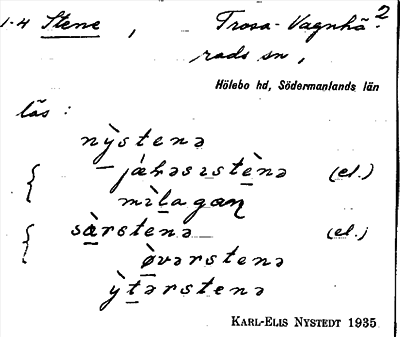 1-4 Stene , Trosa-Vagnhä- 2
rads sn,
Hölebo hd, Södermanlands län
läs :
nỳstenə
– jǽhəsɪstènə (el.)
mìlagaɳ
sàrstenə (el.)
ø̀vərstenə
ỳtərstenə
KARL-ELIS NYSTEDT 1935